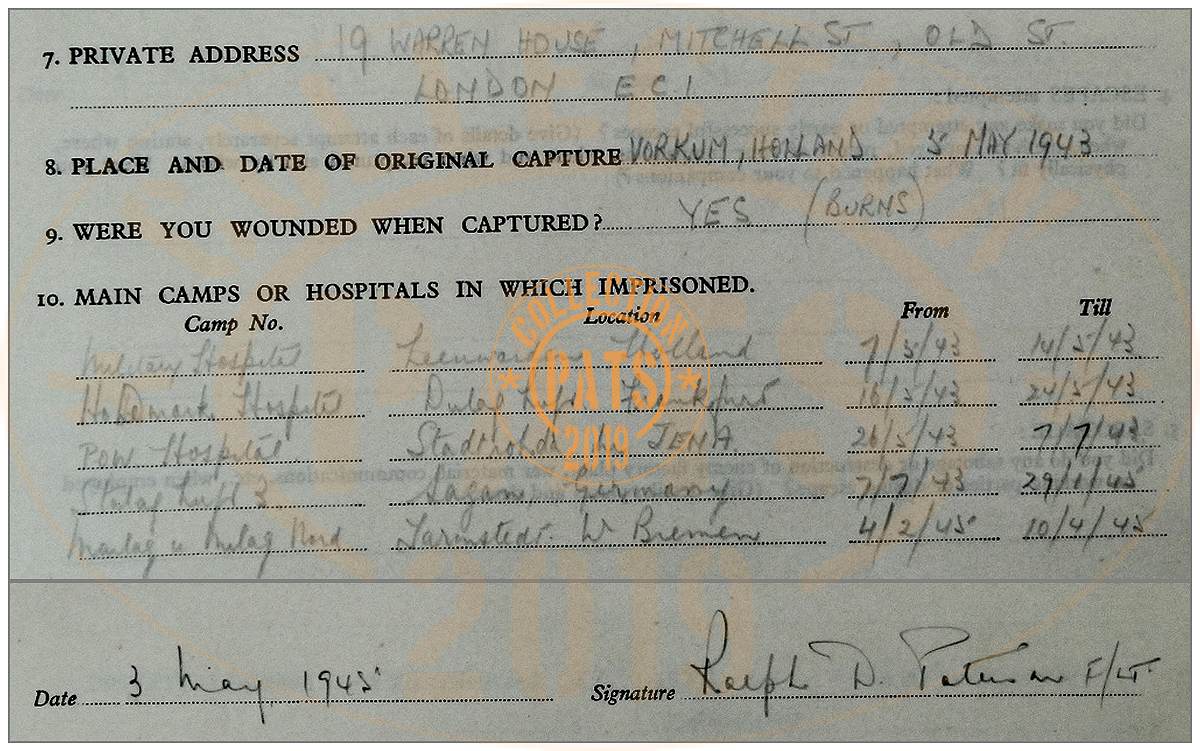 7. PRIVATE ADDRESS 19 WARREN HOUSE, MITCHELL ST, OLD ST.
LONDON E C 1
8. PLACE AND DATE OF ORIGINAL CAPTURE VORKUM, HOLLAND 5 MAY 1943
9. WERE YOU WOUNDED WHEN CAPTURED? YES (BURNS)
10. MAIN CAMPS OR HOSPITALS IN WHICH IMPRISONED.
Camp No. Location From Till
Military Hospital Leenwarden Holland 7/5/43 14/5/43
Hospital Dulag Luft Frankfurt 16/5/43 24/5/43
POW Hospital. JENA 26/5/43 7/7/43
Stalag Luft 3. Sagan, Germany 7/7/43 29/1/45
Marlag u Milag Nord Tarmstedt. W Bremen 4/2/45 10/4/45
COLLECTION
PATS
2019
Date 3 May, 1945 Signature Ralph D. Paterson F/LT